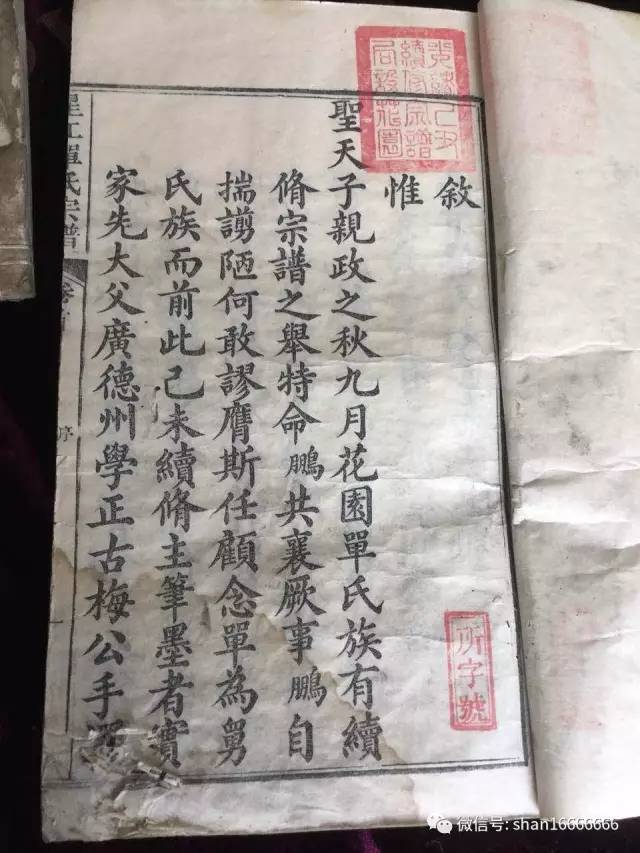 光緒己丑
續修宗譜
局設花園
敘
惟
聖天子親政之秋九月花園單氏族有續
脩宗譜之舉特命鵬共襄厥事鵬自
揣譾陋何敢謬膺斯任顧念單為舅
氏族而前此己未續脩主筆墨者實
家先大父廣德州學正古梅公手
江單氏宗譜
卷首
所字號
微信号: shan16666666